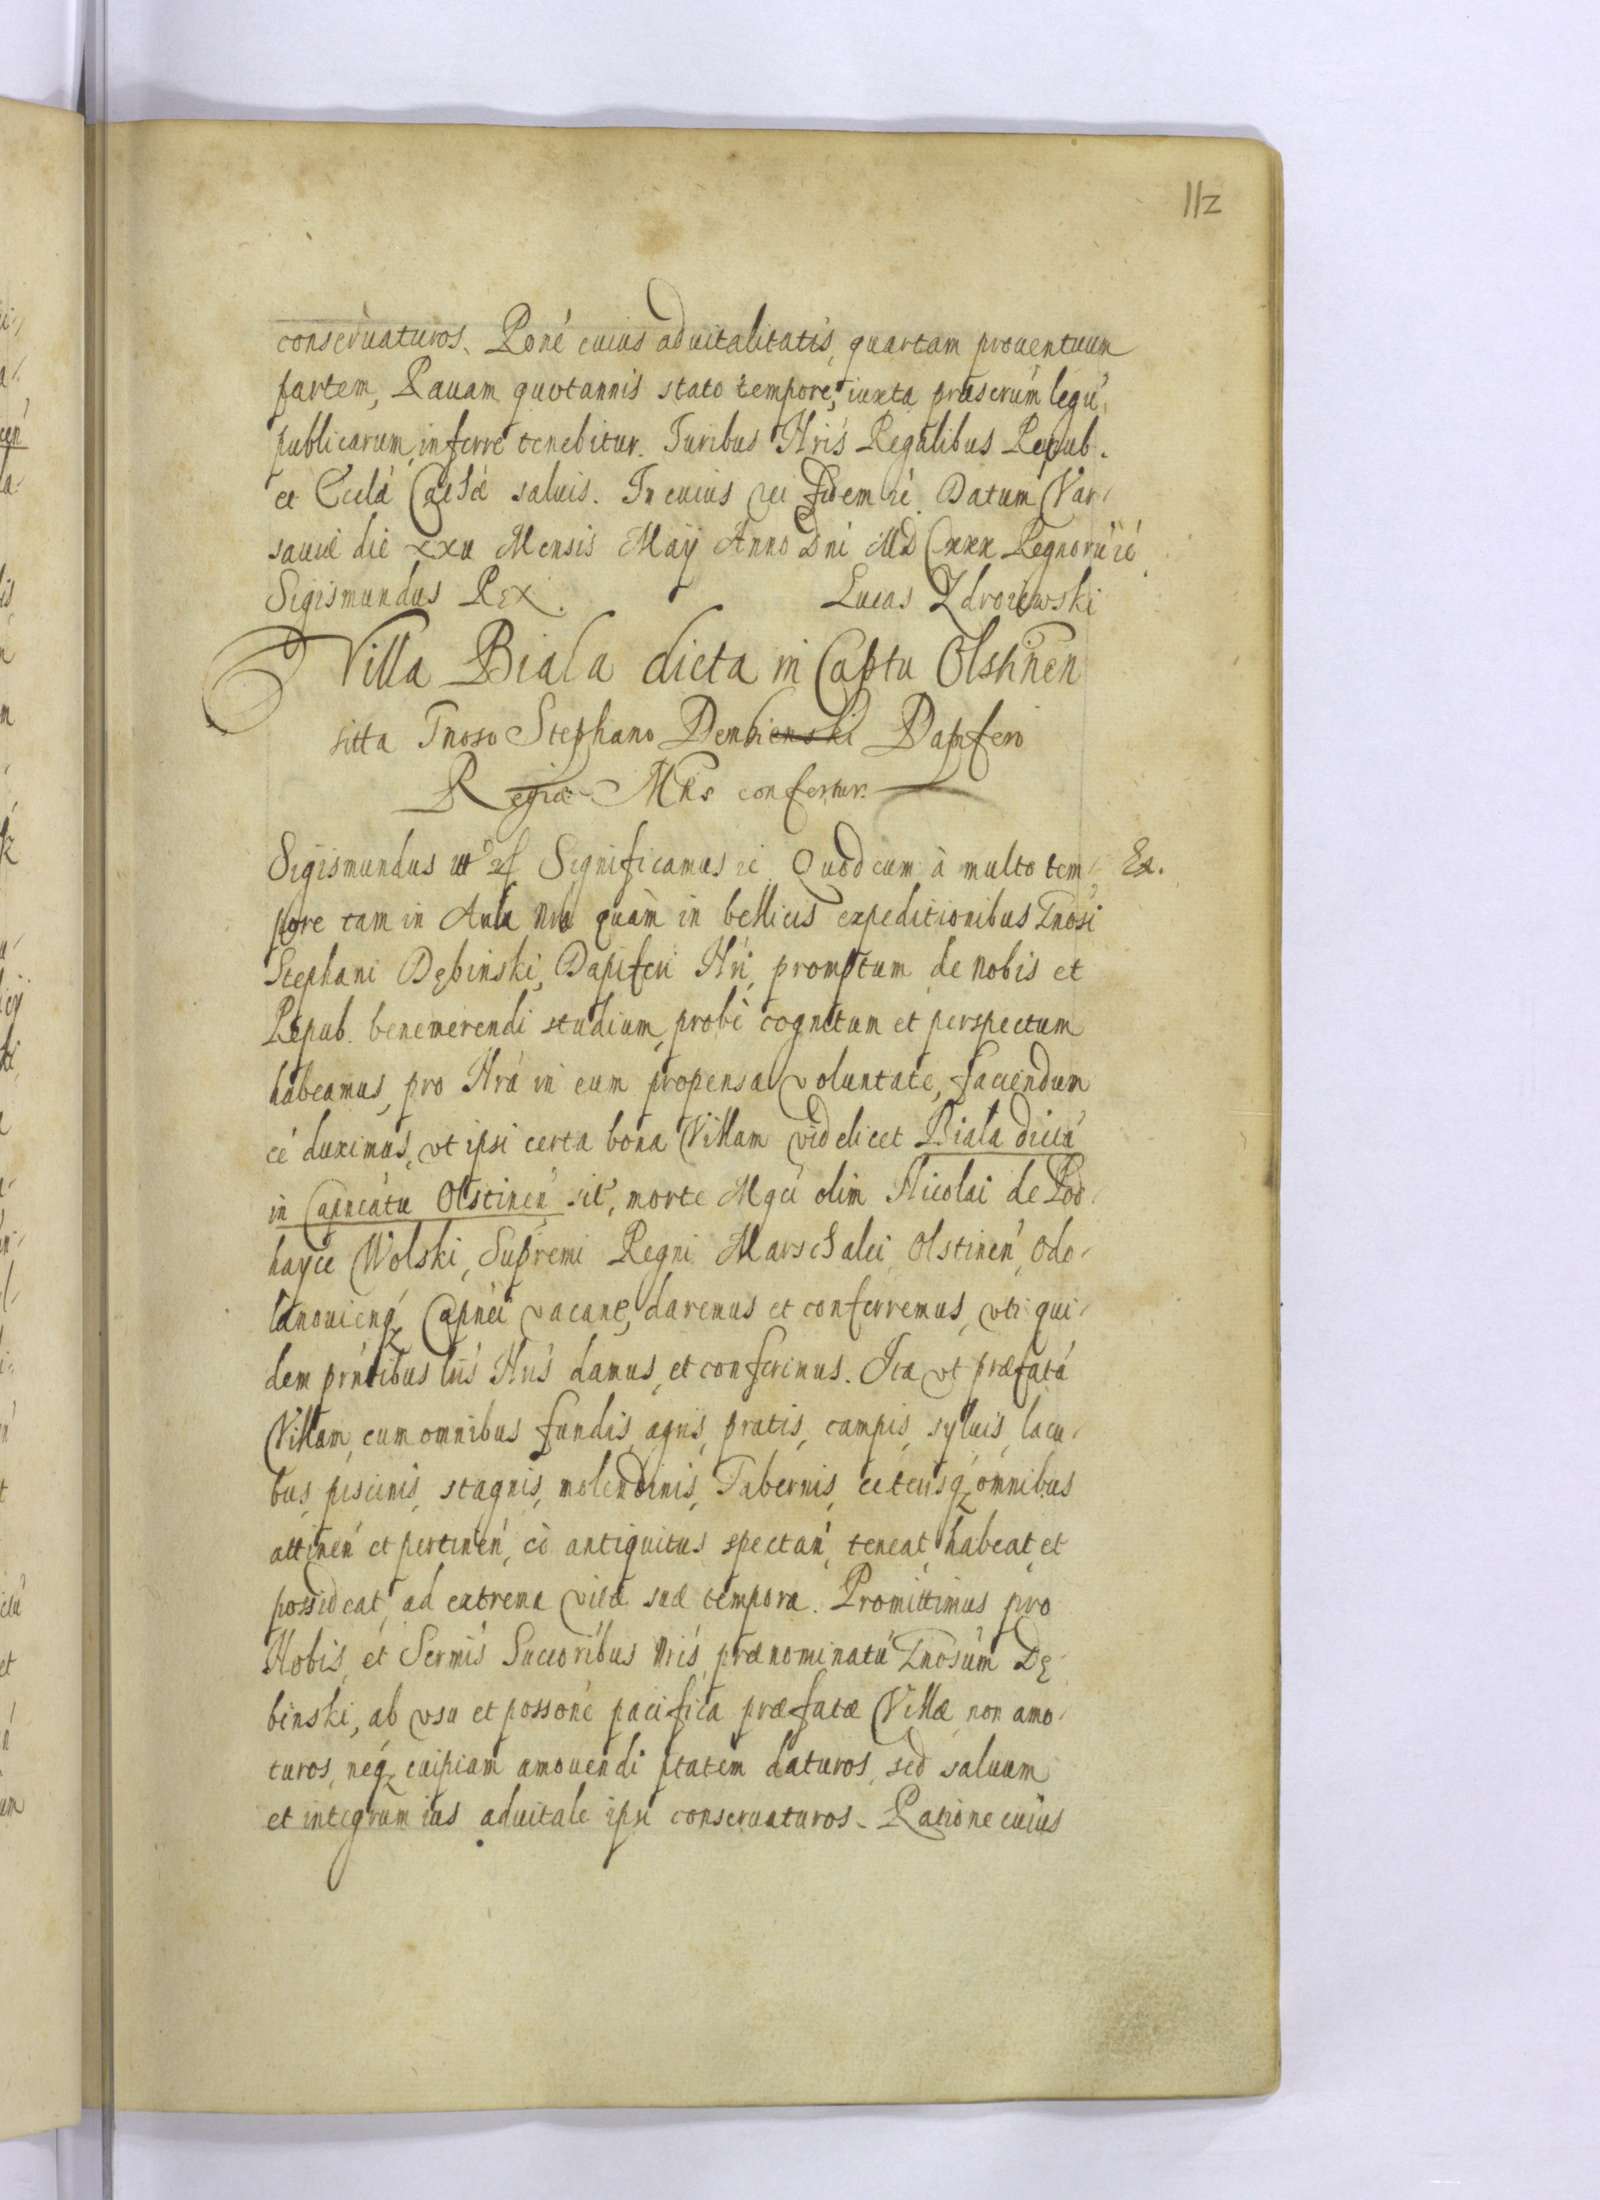 112
conseruaturos. Roné cuius aduitalitatis, quartam prouentuum
partem, Rauam quotannis stato tempore, iuxta præscrúm legú
publicarum, inferre tenebitur. Iuribus Nrís Regalibus Repub.
et Ecclá Caths saluis. In cuius rei fidem ré. Datum Var-
sauiæ die xxv Mensis Maÿ Anno Dní MD Cxxx Regnorú ré
Sigismundus Rex. Lucas Zdroiewski
Villa Biala dicta in Captu Olstinen
sitta Gnoso Stephano Dembienski Dapifero
Regiæ Mtis confertur.
Sigismundus Significamus ré Quod cum à multo tem- Ex.
pore tam in Aula nra quàm in bellicis expeditionibus Gnosi
Stephani Dębinski, Dapiferi Nri, promptum de nobis et
Repub. benemerendi studium, probè cognitum et perspectum
habeamus, pro Nrá in eum propensa voluntate, faciendum
eé duximus, vt ipsi certa bona Villam videlicet Biala dictá
in Capneátu Olstinen sit, morte Mgci olim Nicolai de Pod-
hayce Wolski, Supremi Regni Marschalci, Olstinen, Odo-
lanouienq Capnei vacané, daremus et conferremus, vti qui-
dem prntibus lris Nris damus, et conferimus. Ita vt præfatá
Villam, cum omnibus fundis, agris, pratis, campis, syluis, lacu-
bus, piscinis, stagnis, molendinis, Tabernis, ceterisq omnibus
attinen et pertinen, eò antiquitus spectan, teneat, habeat, et
possideat, ad extrema vitæ suæ tempora. Promittimus pro
Nobis, et Sermis Succoribus Nris, prænominatú Gnosum Dę-
binski, ab vsu et possoné pacifica præfatæ Villæ non amo-
turos, neq cuipiam amouendi ptatem daturos, sed saluum
et integrum ius aduitale ipsi conseruaturos. Ratione cuius